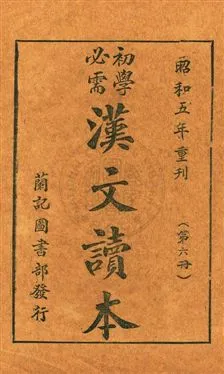 昭和五年重刊
(第六冊)
初學
必需
漢文讀本
蘭記圖書部發行